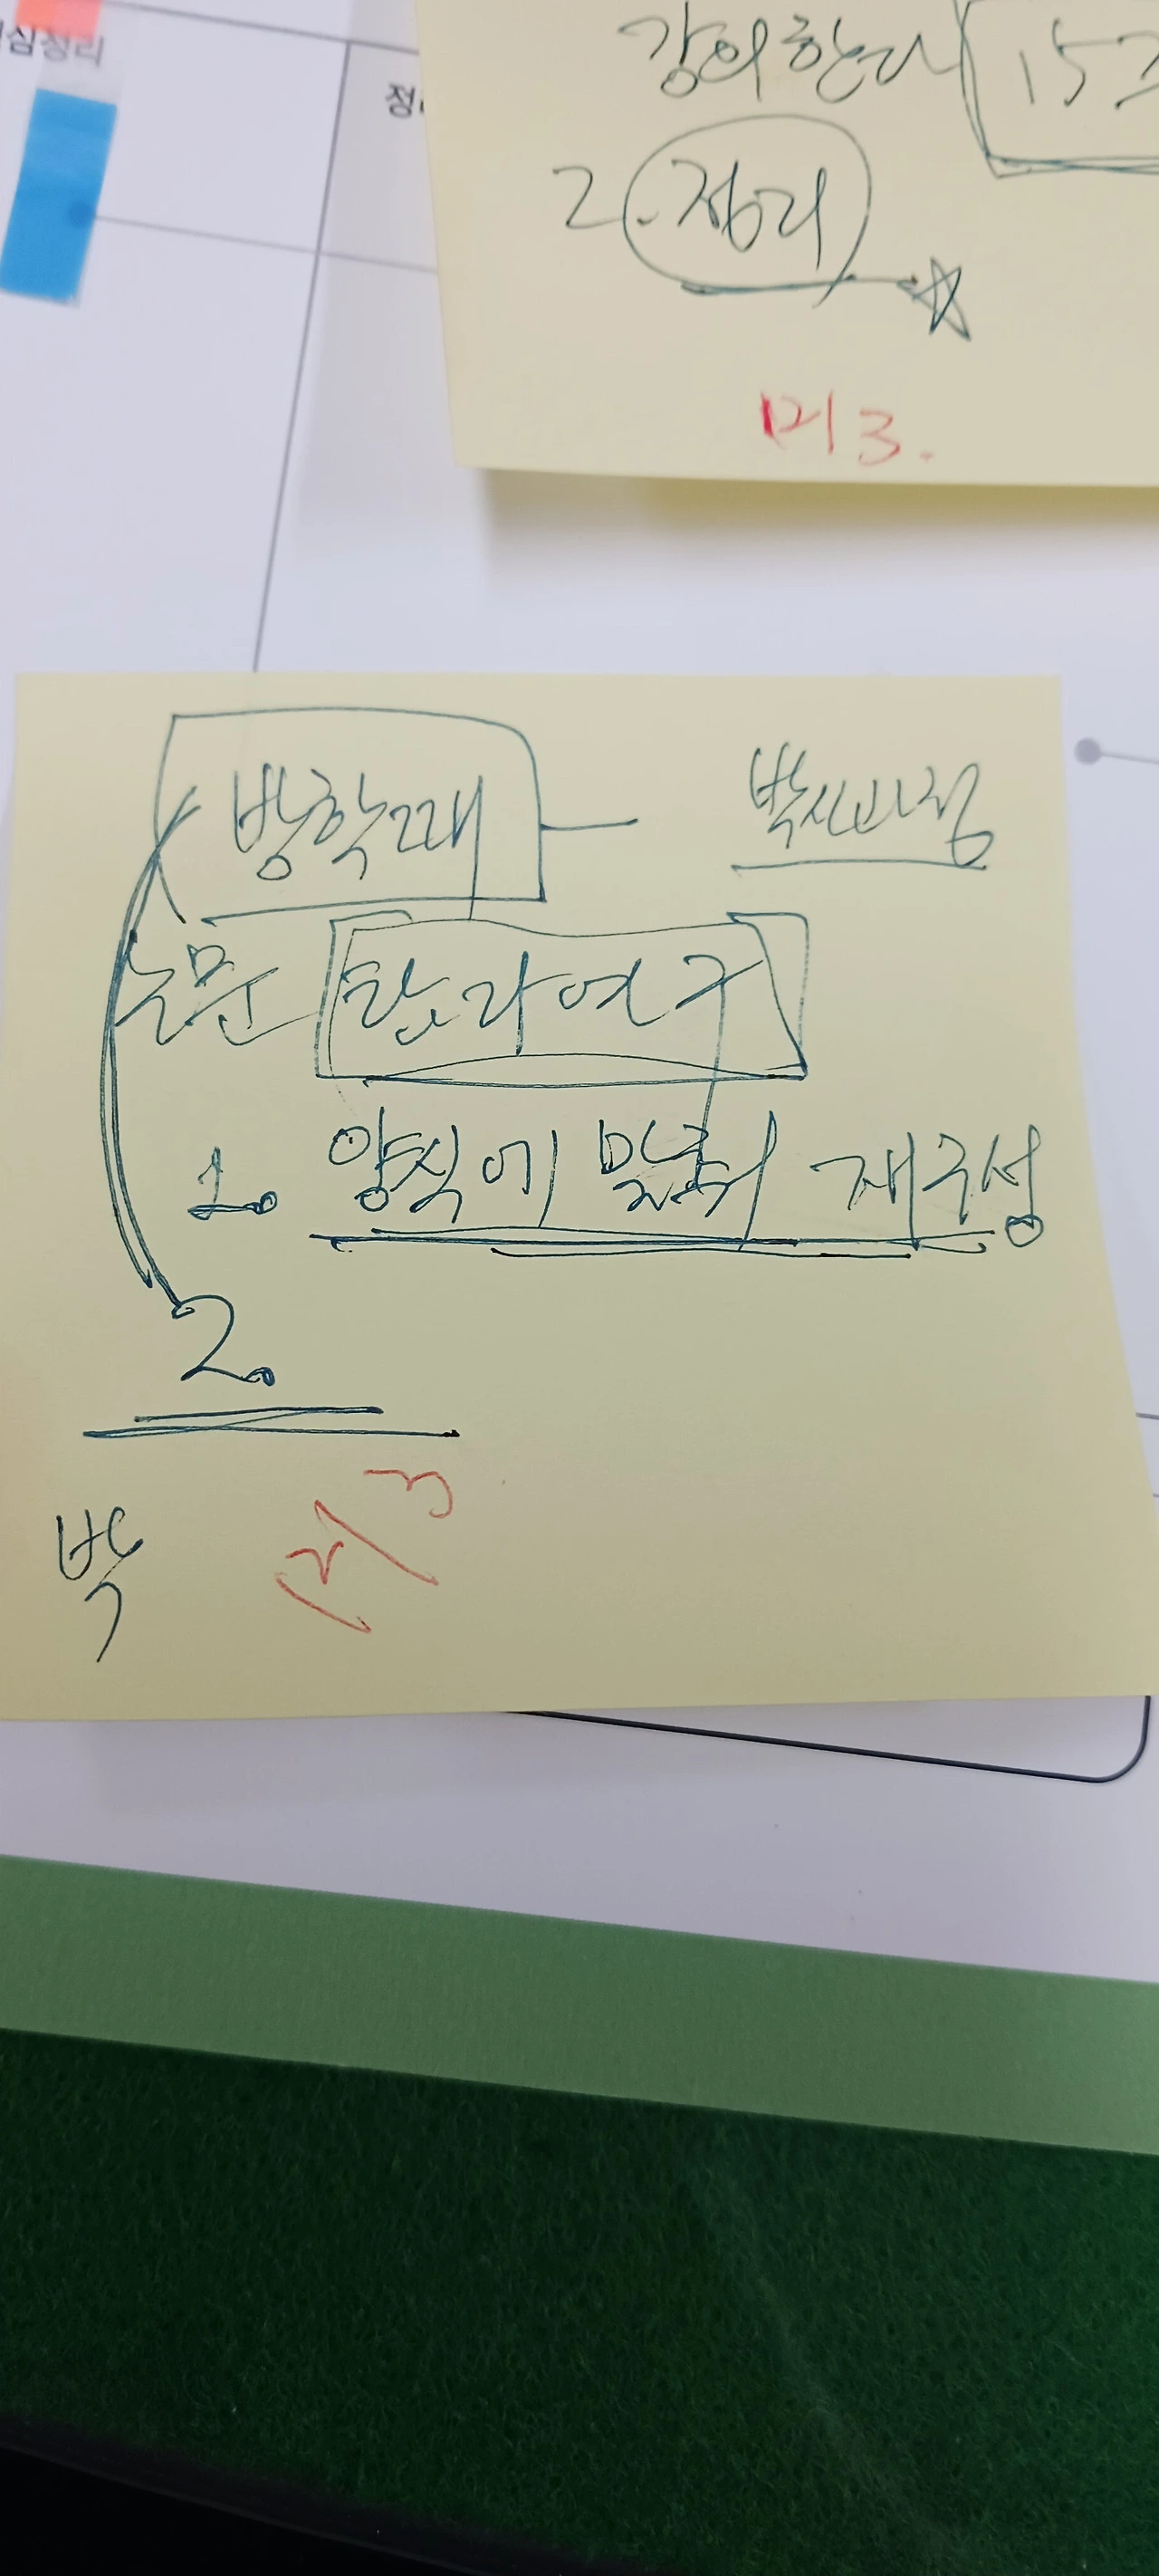 심정리
정
강의한다 15
2. 정리
미3.
방학때 박사과정
논문 연구
1. 양식에 맞춰 재구성
2.
박